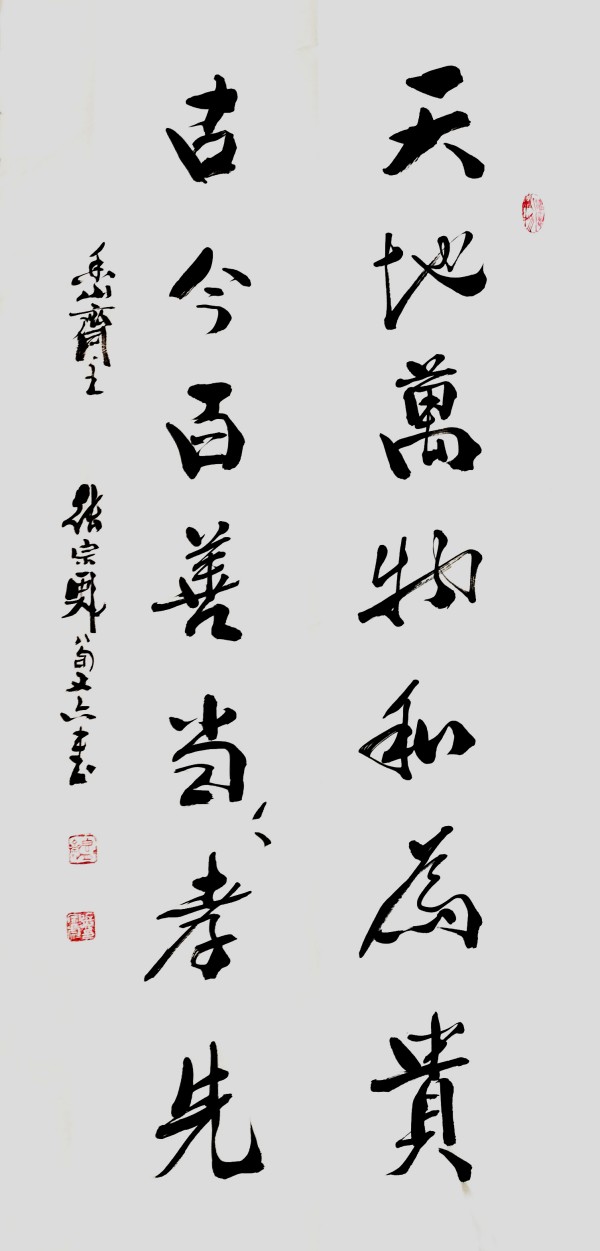 天地萬物和為貴
古今百善当孝先
齋主
張宗 八旬又六書